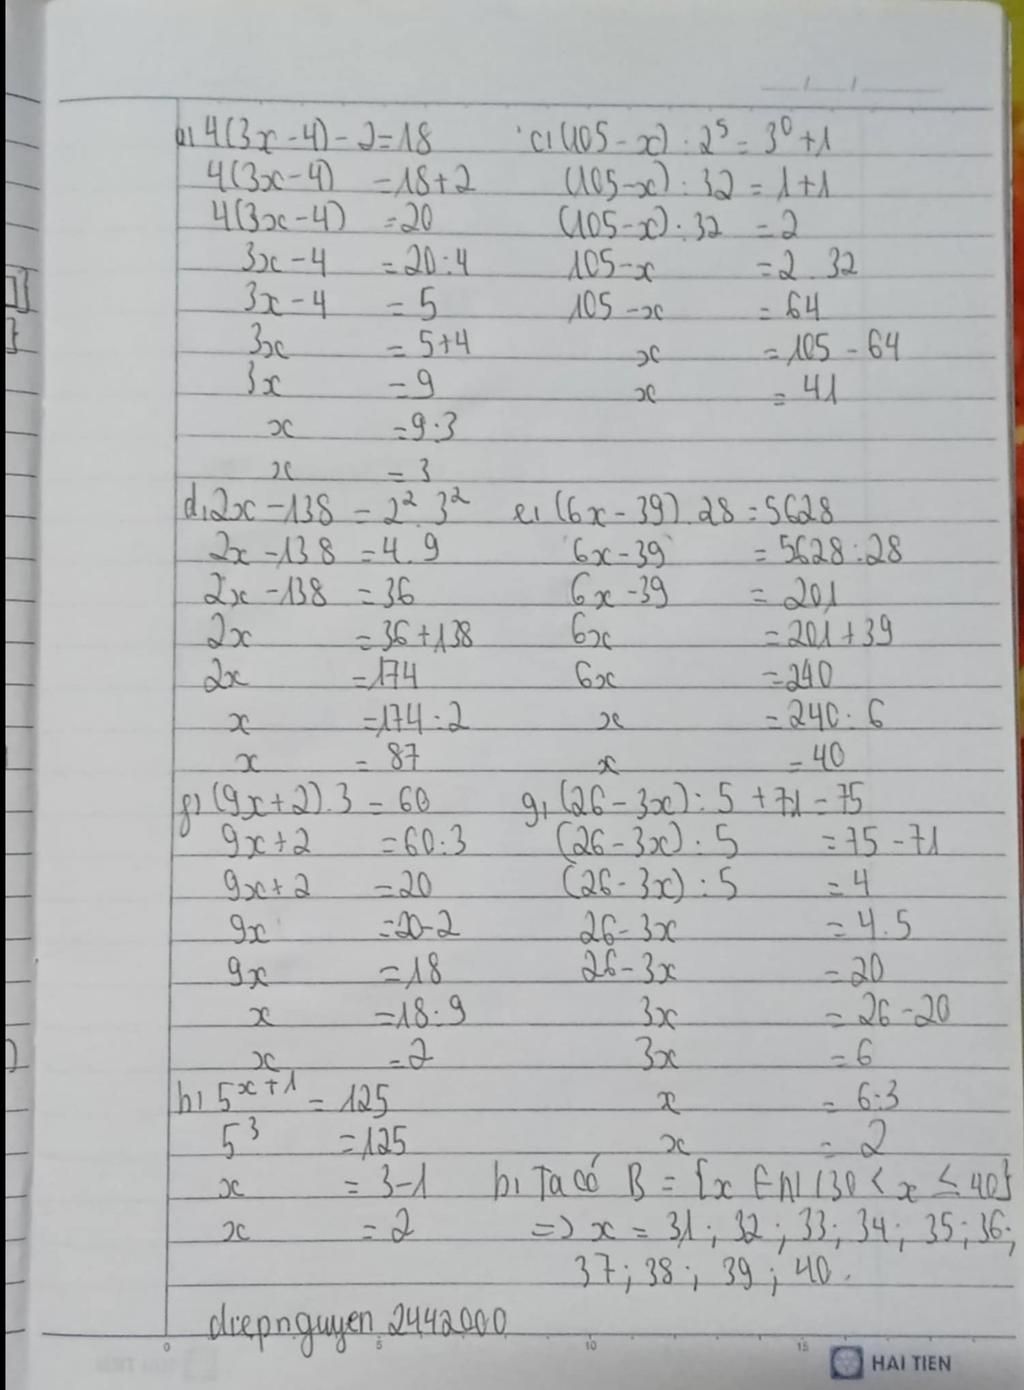 b, 4(3x - 4) - 2 = 18
4(3x - 4) = 18 + 2
4(3x - 4) = 20
3x - 4 = 20 : 4
3x - 4 = 5
3x = 5 + 4
3x = 9
x = 9 : 3
x = 3
c, (105 - x) : 2⁵ = 3⁰ + 1
(105 - x) : 32 = 1 + 1
(105 - x) : 32 = 2
105 - x = 2 . 32
105 - x = 64
x = 105 - 64
x = 41
d, 2x - 138 = 2² . 3²
2x - 138 = 4 . 9
2x - 138 = 36
2x = 36 + 138
2x = 174
x = 174 : 2
x = 87
e, (6x - 39) . 28 = 5628
6x - 39 = 5628 : 28
6x - 39 = 201
6x = 201 + 39
6x = 240
x = 240 : 6
x = 40
f, (9x + 2) . 3 = 60
9x + 2 = 60 : 3
9x + 2 = 20
9x = 20 - 2
9x = 18
x = 18 : 9
x = 2
g, (26 - 3x) : 5 + 71 = 75
(26 - 3x) : 5 = 75 - 71
(26 - 3x) : 5 = 4
26 - 3x = 4 . 5
26 - 3x = 20
3x = 26 - 20
3x = 6
x = 6 : 3
x = 2
h, 5ˣ⁺¹ = 125
5³ = 125
x = 3 - 1
x = 2
b, Ta có B = {x ∈ N | 30 < x ≤ 40}
=> x = 31 ; 32 ; 33 ; 34 ; 35 ; 36 ;
37 ; 38 ; 39 ; 40 .
diepnguyen 2442000
0 5 10 15
HAI TIEN